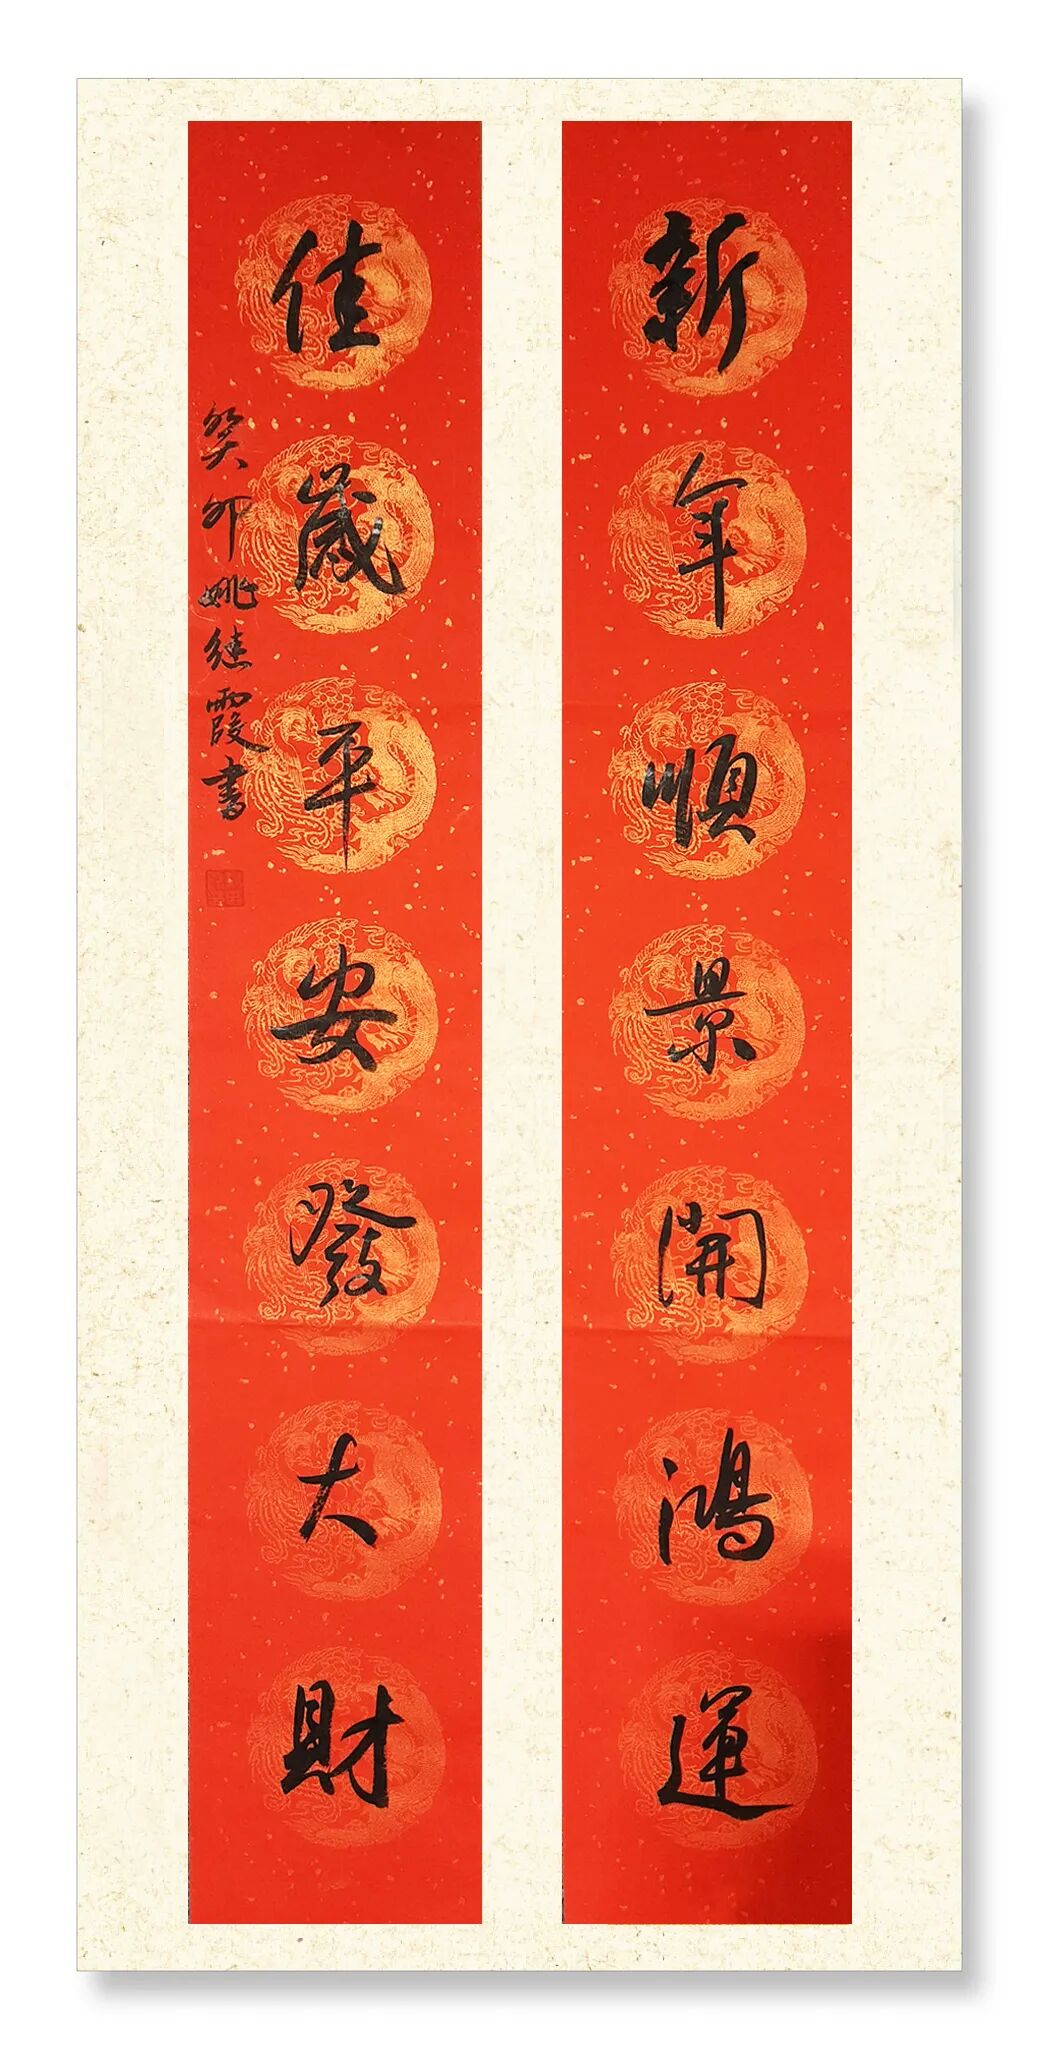 新年順景開鴻運
佳歲平安發大財
癸卯姚继霞書